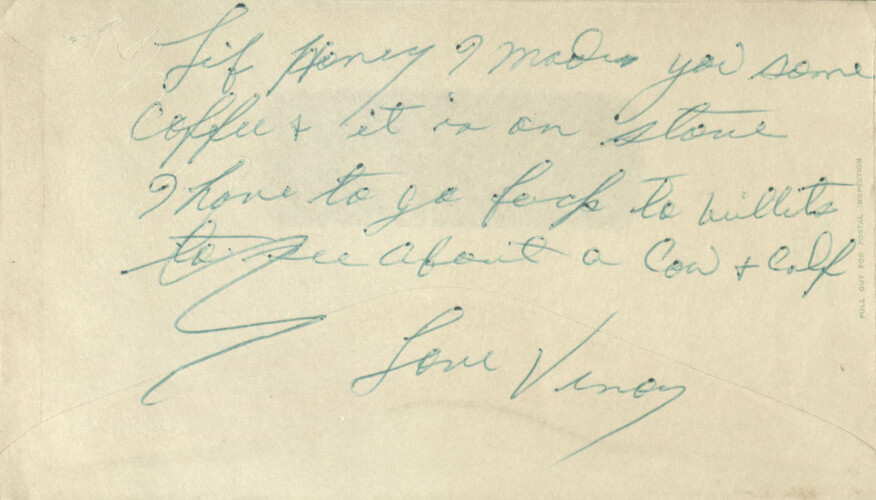 Lif Honey I made you some
Coffee & it is on stove
I have to go back to Willits
to see About a Cow & Calf
Love Vinoy
PULL OUT FOR POSTAL INSPECTION